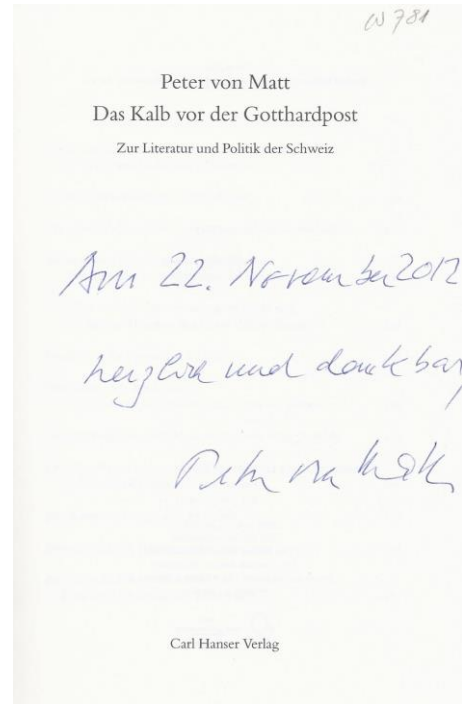 W 781
Peter von Matt
Das Kalb vor der Gotthardpost
Zur Literatur und Politik der Schweiz
Am 22. November 2012
herzlich und dankbar
Peter von Matt
Carl Hanser Verlag